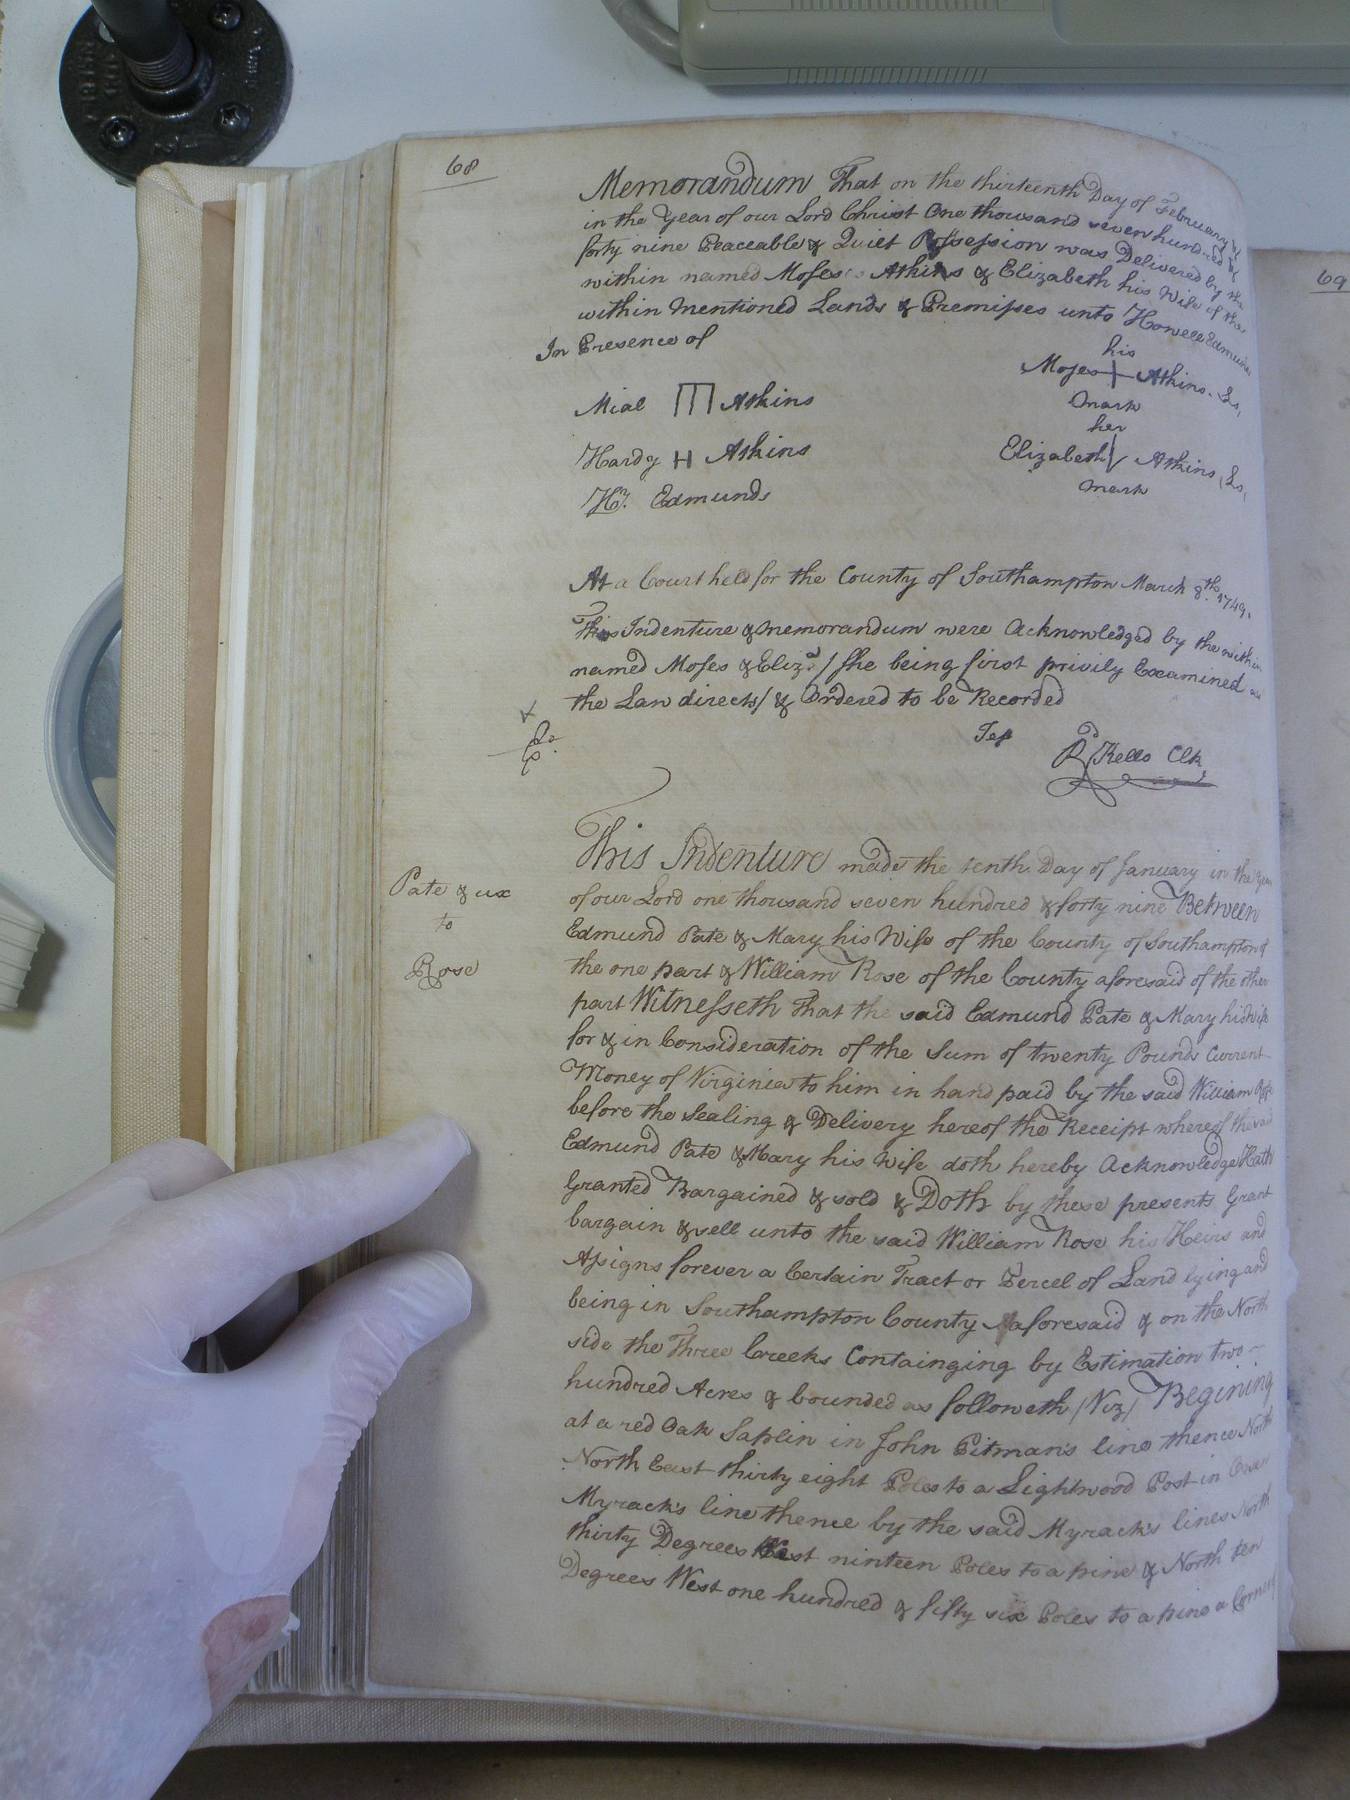 68
Memorandum That on the thirteenth Day of February
in the Year of our Lord Christ One thousand seven hundred &
forty nine Peaceable & Quiet Possession was Delivered by the
within named Moses Atkins & Elizabeth his Wife of the
within mentioned Lands & Premisses unto Howell Edmunds
In Presence of
his
Moses Atkins Ls.
mark
Mial Atkins
her
Hardy H Atkins
Elizabeth Atkins Ls.
mark
Hn. Edmunds
At a Court held for the County of Southampton March 8th 1749.
This Indenture & memorandum were Acknowledged by the within
named Moses & Eliz.a / she being first privily Examined as
the Law directs / & Ordered to be Recorded
Tes R Kello Clk
Pate & ux
to
Rose
This Indenture made the tenth Day of January in the Year
of our Lord one thousand seven hundred & forty nine Between
Edmund Pate & Mary his Wife of the County of Southampton of
the one part & William Rose of the County aforesaid of the other
part Witnesseth That the said Edmund Pate & Mary his Wife
for & in Consideration of the Sum of twenty Pounds Current
Money of Virginia to him in hand paid by the said William Rose
before the Sealing & Delivery hereof the Receipt whereof the said
Edmund Pate & Mary his Wife doth hereby Acknowledge Hath
Granted Bargained & sold & Doth by these presents Grant
bargain & sell unto the said William Rose his Heirs and
Assigns forever a Certain Tract or Percel of Land lying and
being in Southampton County aforesaid & on the North
side the Three Creeks Containging by Estimation two
hundred Acres & bounded as followeth / Viz / Begining
at a red Oak Saplin in John Pitman's line thence North
North East thirty eight Poles to a Lightwood Post in Owen
Myrack's line thence by the said Myrack's lines North
thirty Degrees West ninteen Poles to a pine & North ten
Degrees West one hundred & fifty six Poles to a pine a Corner
69